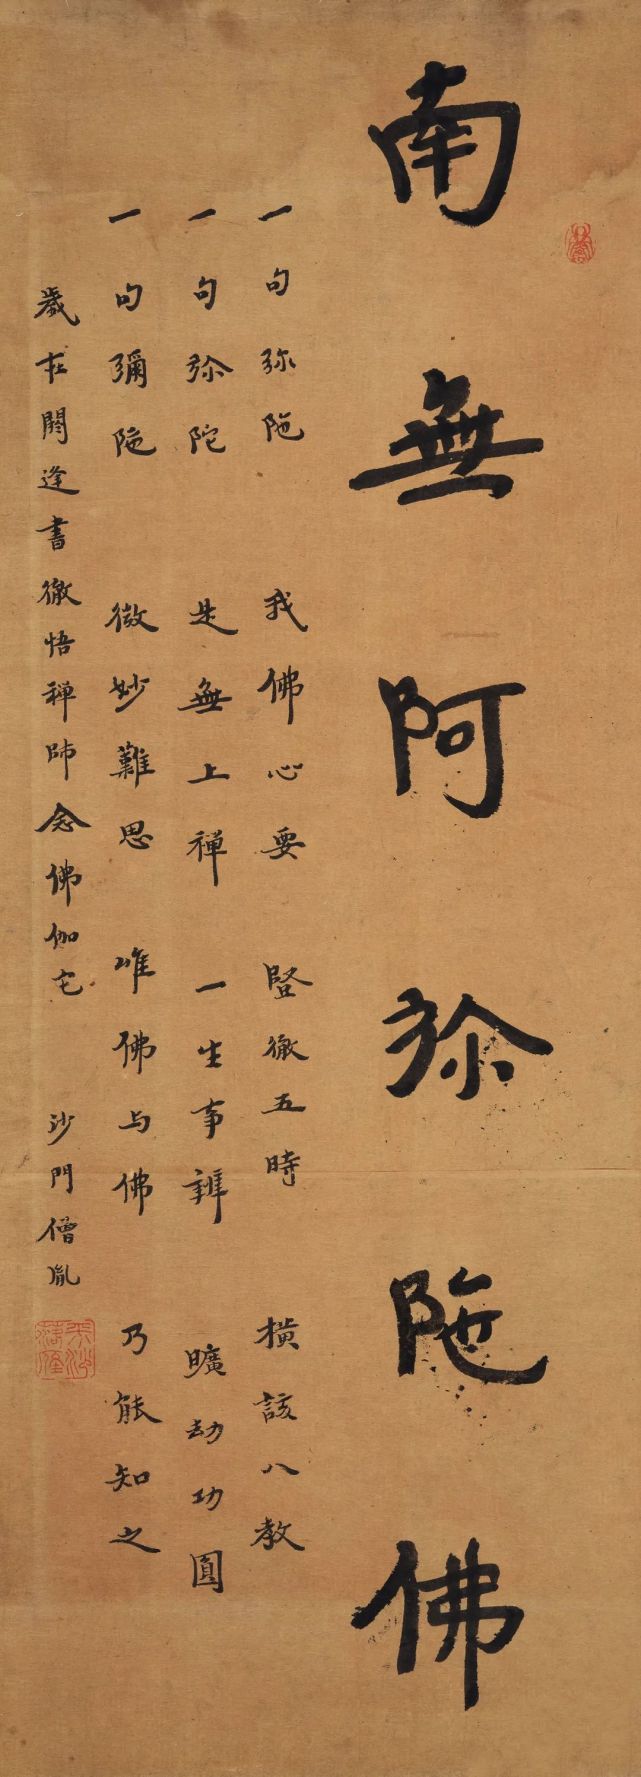 南無阿弥陁佛
一句弥陁 我佛心要 豎徹五時 橫該八教
一句弥陀 是無上禪 一生事辨 曠劫功圓
一句彌陁 微妙難思 唯佛与佛 乃能知之
歲在閼逢書徹悟禪師念佛伽它 沙門僧胤